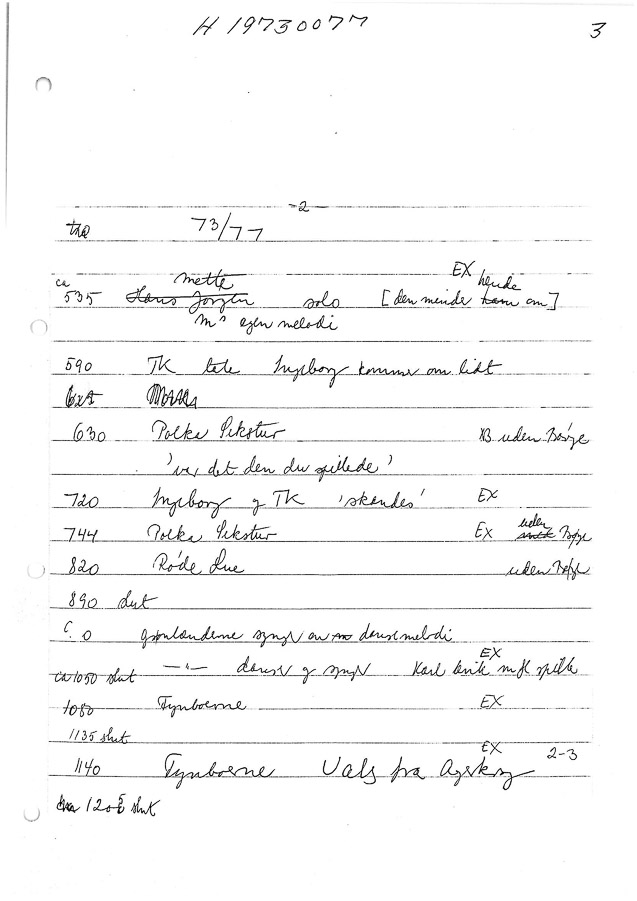 H 19730077
3
-2-
73/77
mette
EX hende
ca 535 Hans Jørgen solo [den meinde ham om]
M's egen melodi
590 TK lete Ingeborg kommer om lidt
630 Polka Sekstur NB uden Børge
'var det den du spillede'
720 Ingeborg og TK 'skendes' EX
744 Polka Sekstur EX uden Børge
820 Røde Lue uden Børge
890 slut
C. 0 grønlænderne synger en dansemelodi
EX
ca 1050 slut —"— danser og synger Karl Erik m fl spiller
1080 Fynboerne EX
1135 slut
EX
1140 Fynboerne Vals fra 2-3
1205 slut